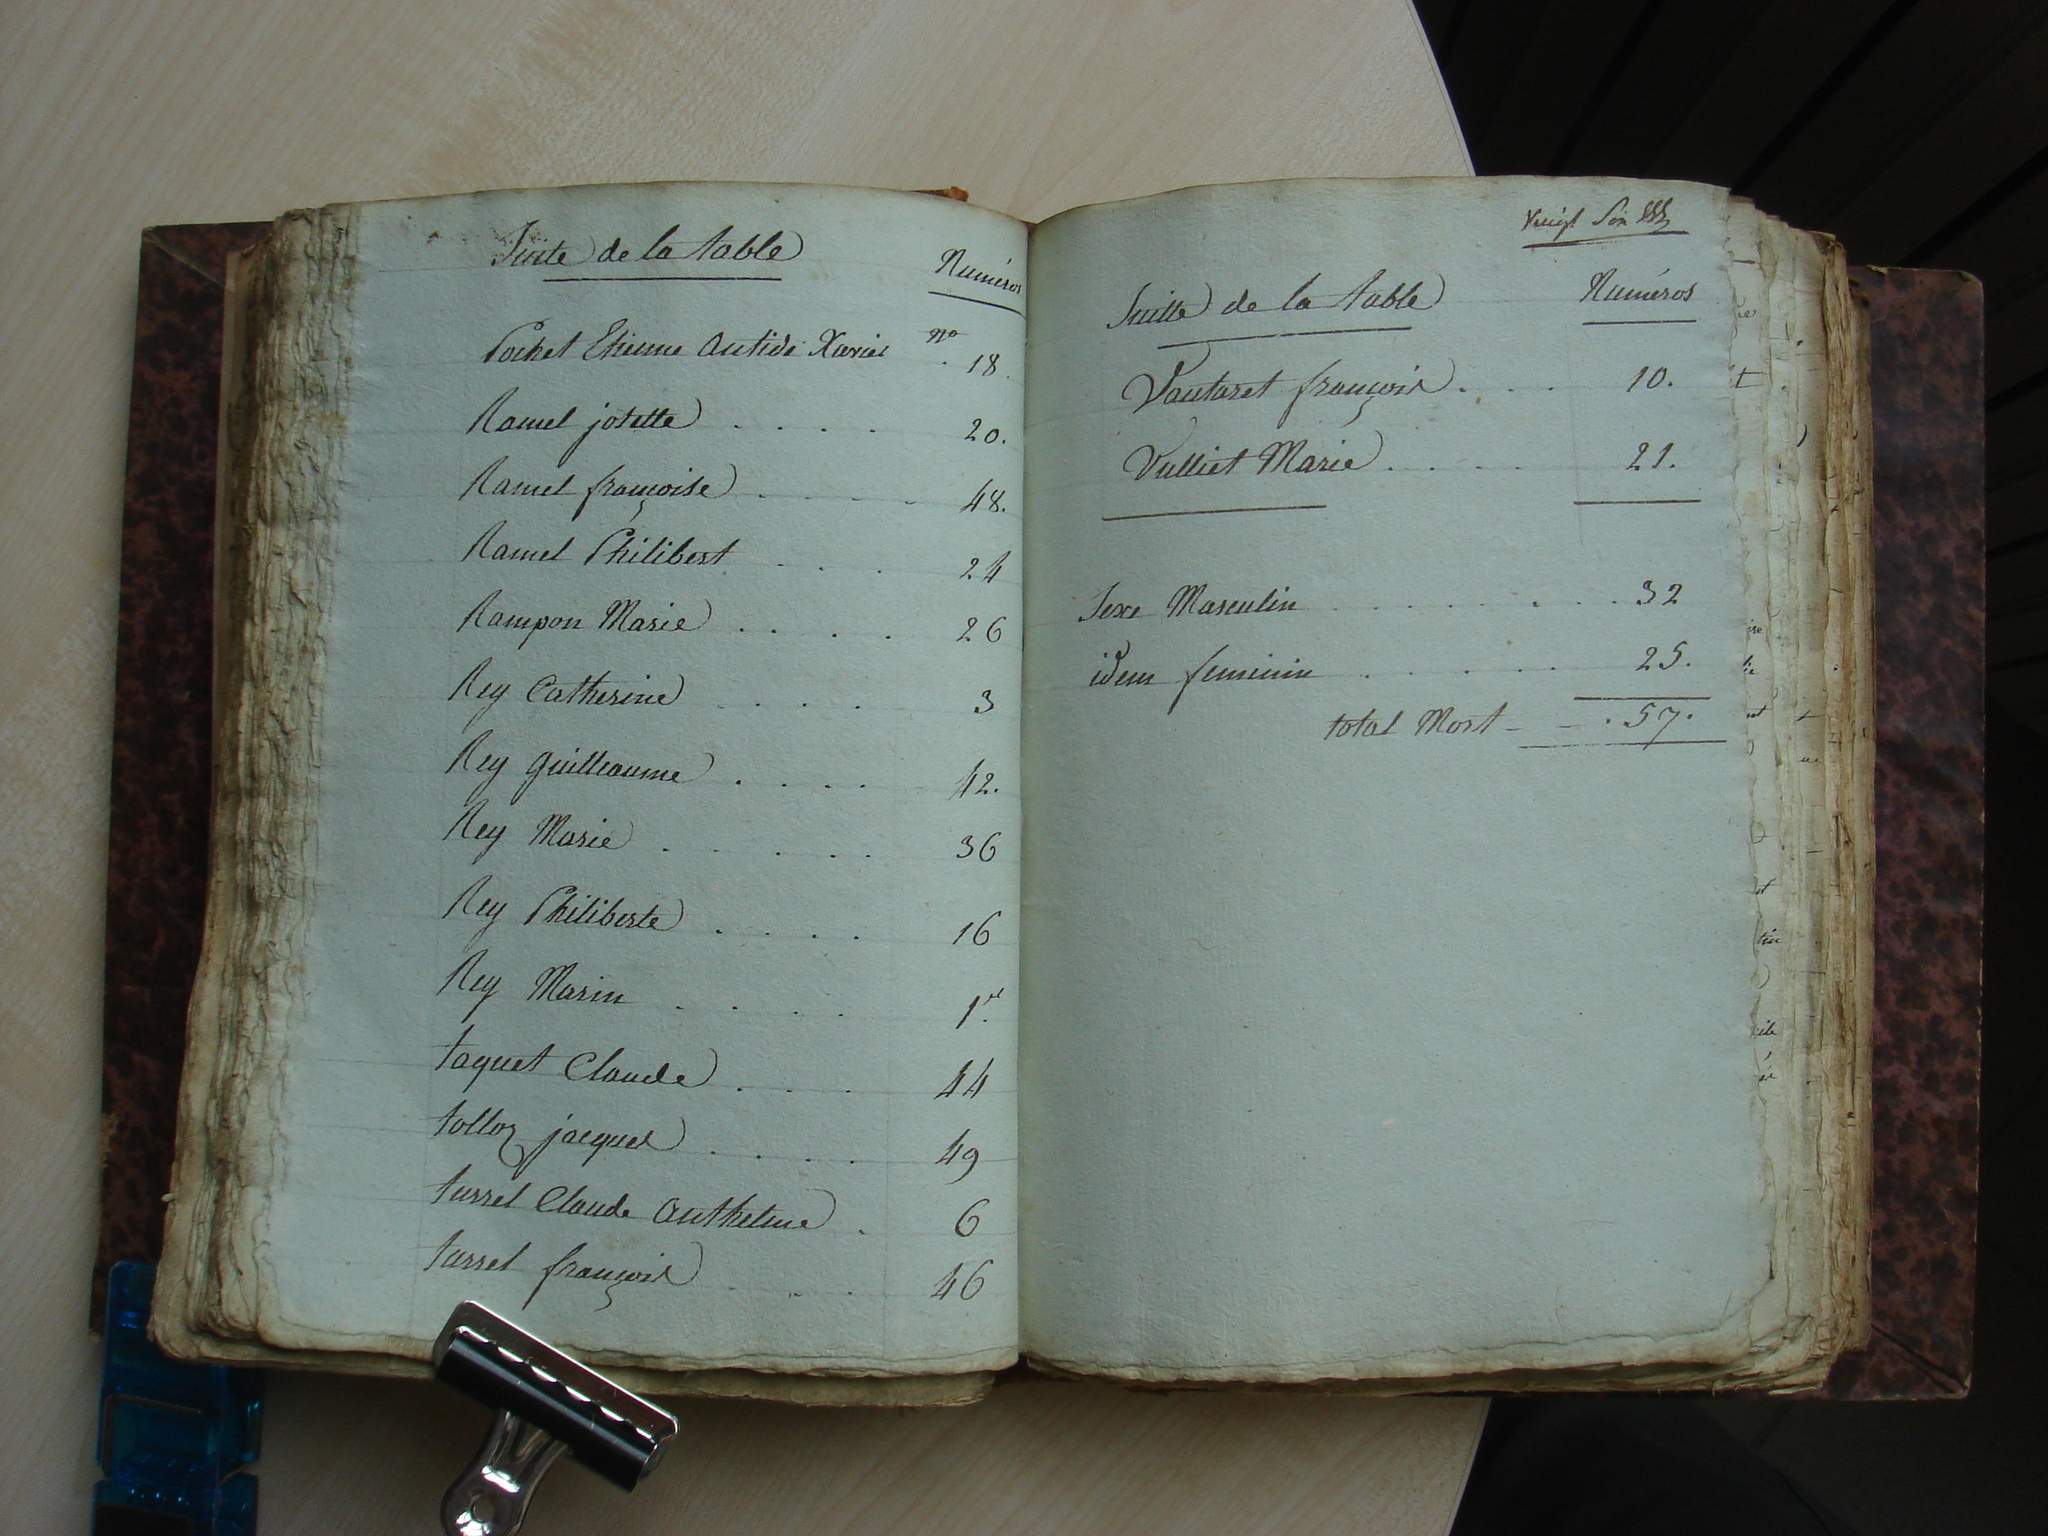 Suite de la table
Numéros
Pochet Etienne Antide Xavier nº 18.
Ramel josette . . . . 20.
Ramel françoise . . . . 48.
Ramel Philibert . . . 24
Rampon Marie . . . . 26
Rey Catherine . . . . 3
Rey guilleaume . . . . 42.
Rey Marie . . . . . 36
Rey Philiberte . . . . 16
Rey Marin . . . . 1er
taquet Claude . . . 44
tolloz jacques . . . . 49
turrel Claude Anthelme . 6
turrel françois . . . 46
Vuigt Six
Suitte de la table
Numéros
Vautaret françois . . . 10.
Vulliet Marie . . . . 21.
Sexe Masculin . . . . . . . 32
idem feminin . . . . . . 25.
total Mort - - . 57.